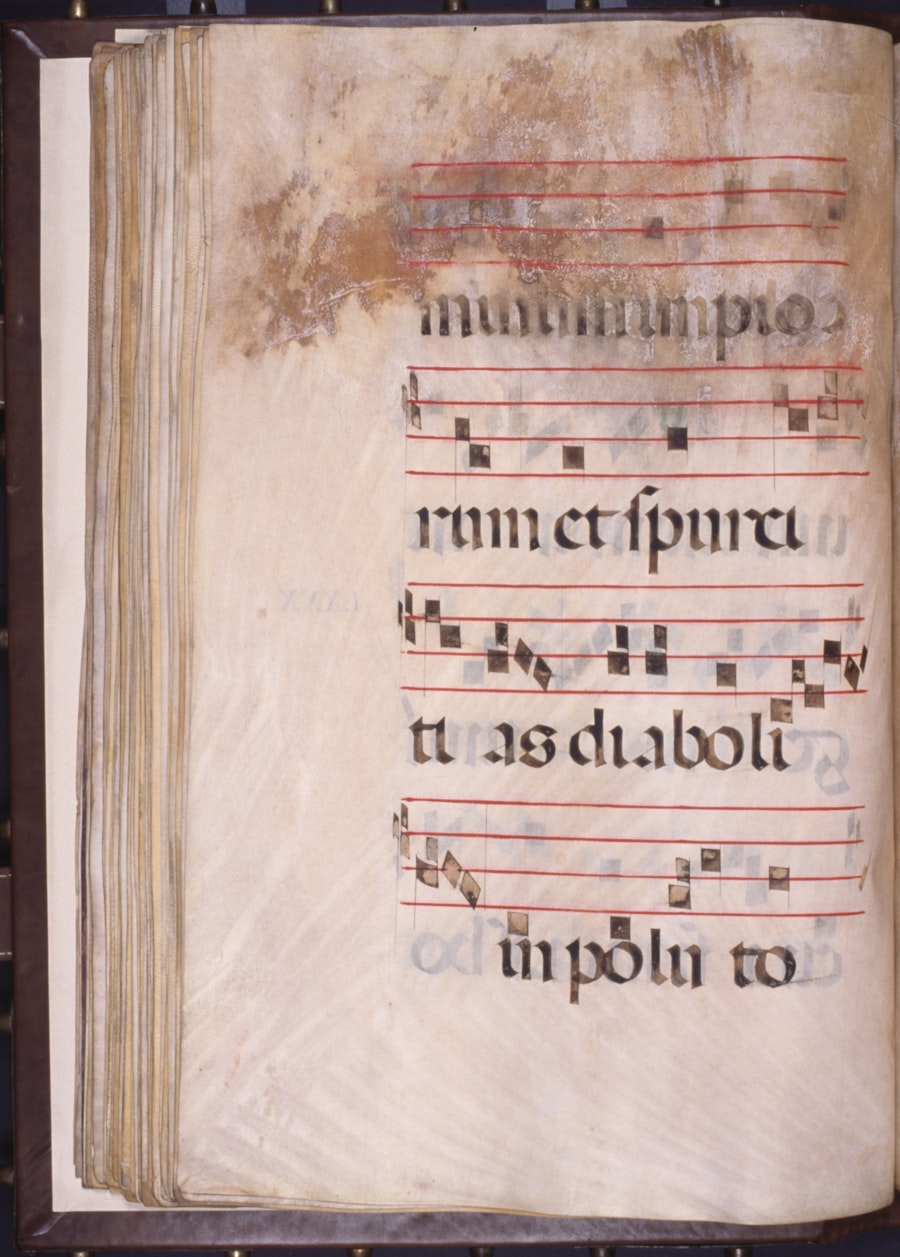 minum impio
rum et spurci
ti as diaboli
in pollu to